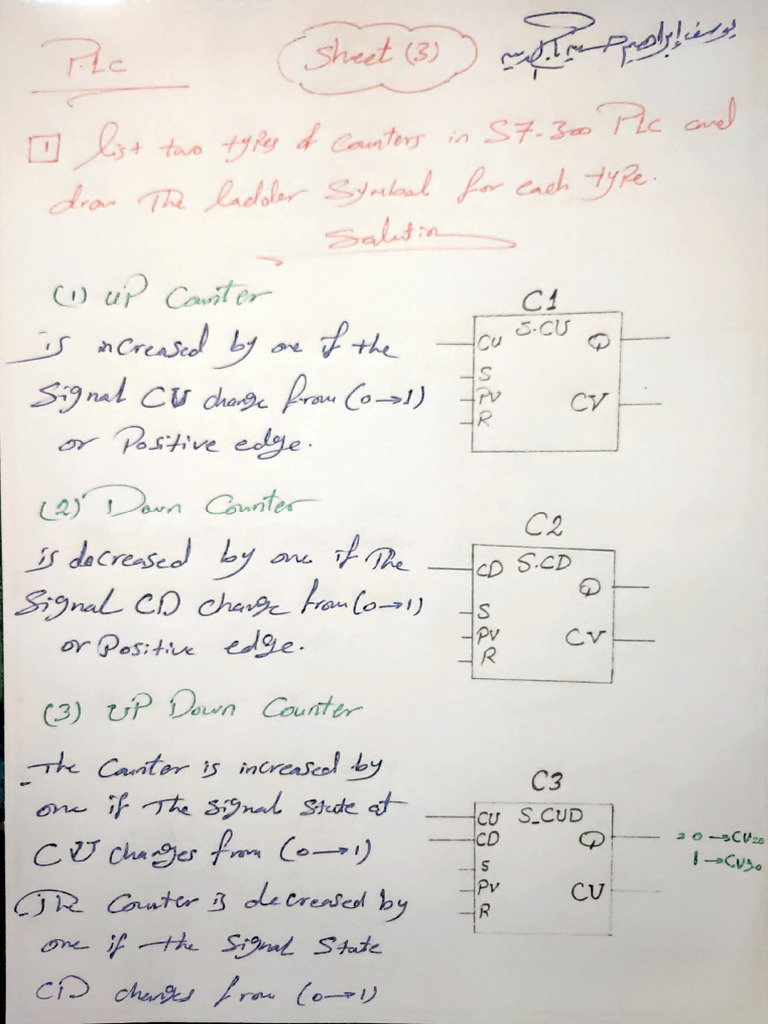 P.Lc
Sheet (3)
يوسف إبراهيم حسيني
1 list two types of Counters in S7-300 PLC and
draw The ladder Symbol for each type.
Solution
(1) UP Counter
is increased by one if the
Signal CU change from (0→1)
or Positive edge.
C1
S.CU
CU
Q
S
PV
CV
R
(2) Down Counter
is decreased by one if The
Signal CD change from (0→1)
or Positive edge.
C2
CD S.CD
Q
S
PV
CV
R
(3) UP Down Counter
The Counter is increased by
one if The Signal State at
CU changes from (0→1)
The Counter is decreased by
one if the Signal State
CD changes from (0→1)
C3
CU S_CUD
CD
Q
S
PV
CV
R
0 →CV=0
1 →CV>0